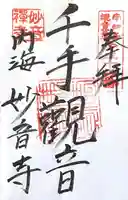 奉拜
千手觀音
内海 妙音寺